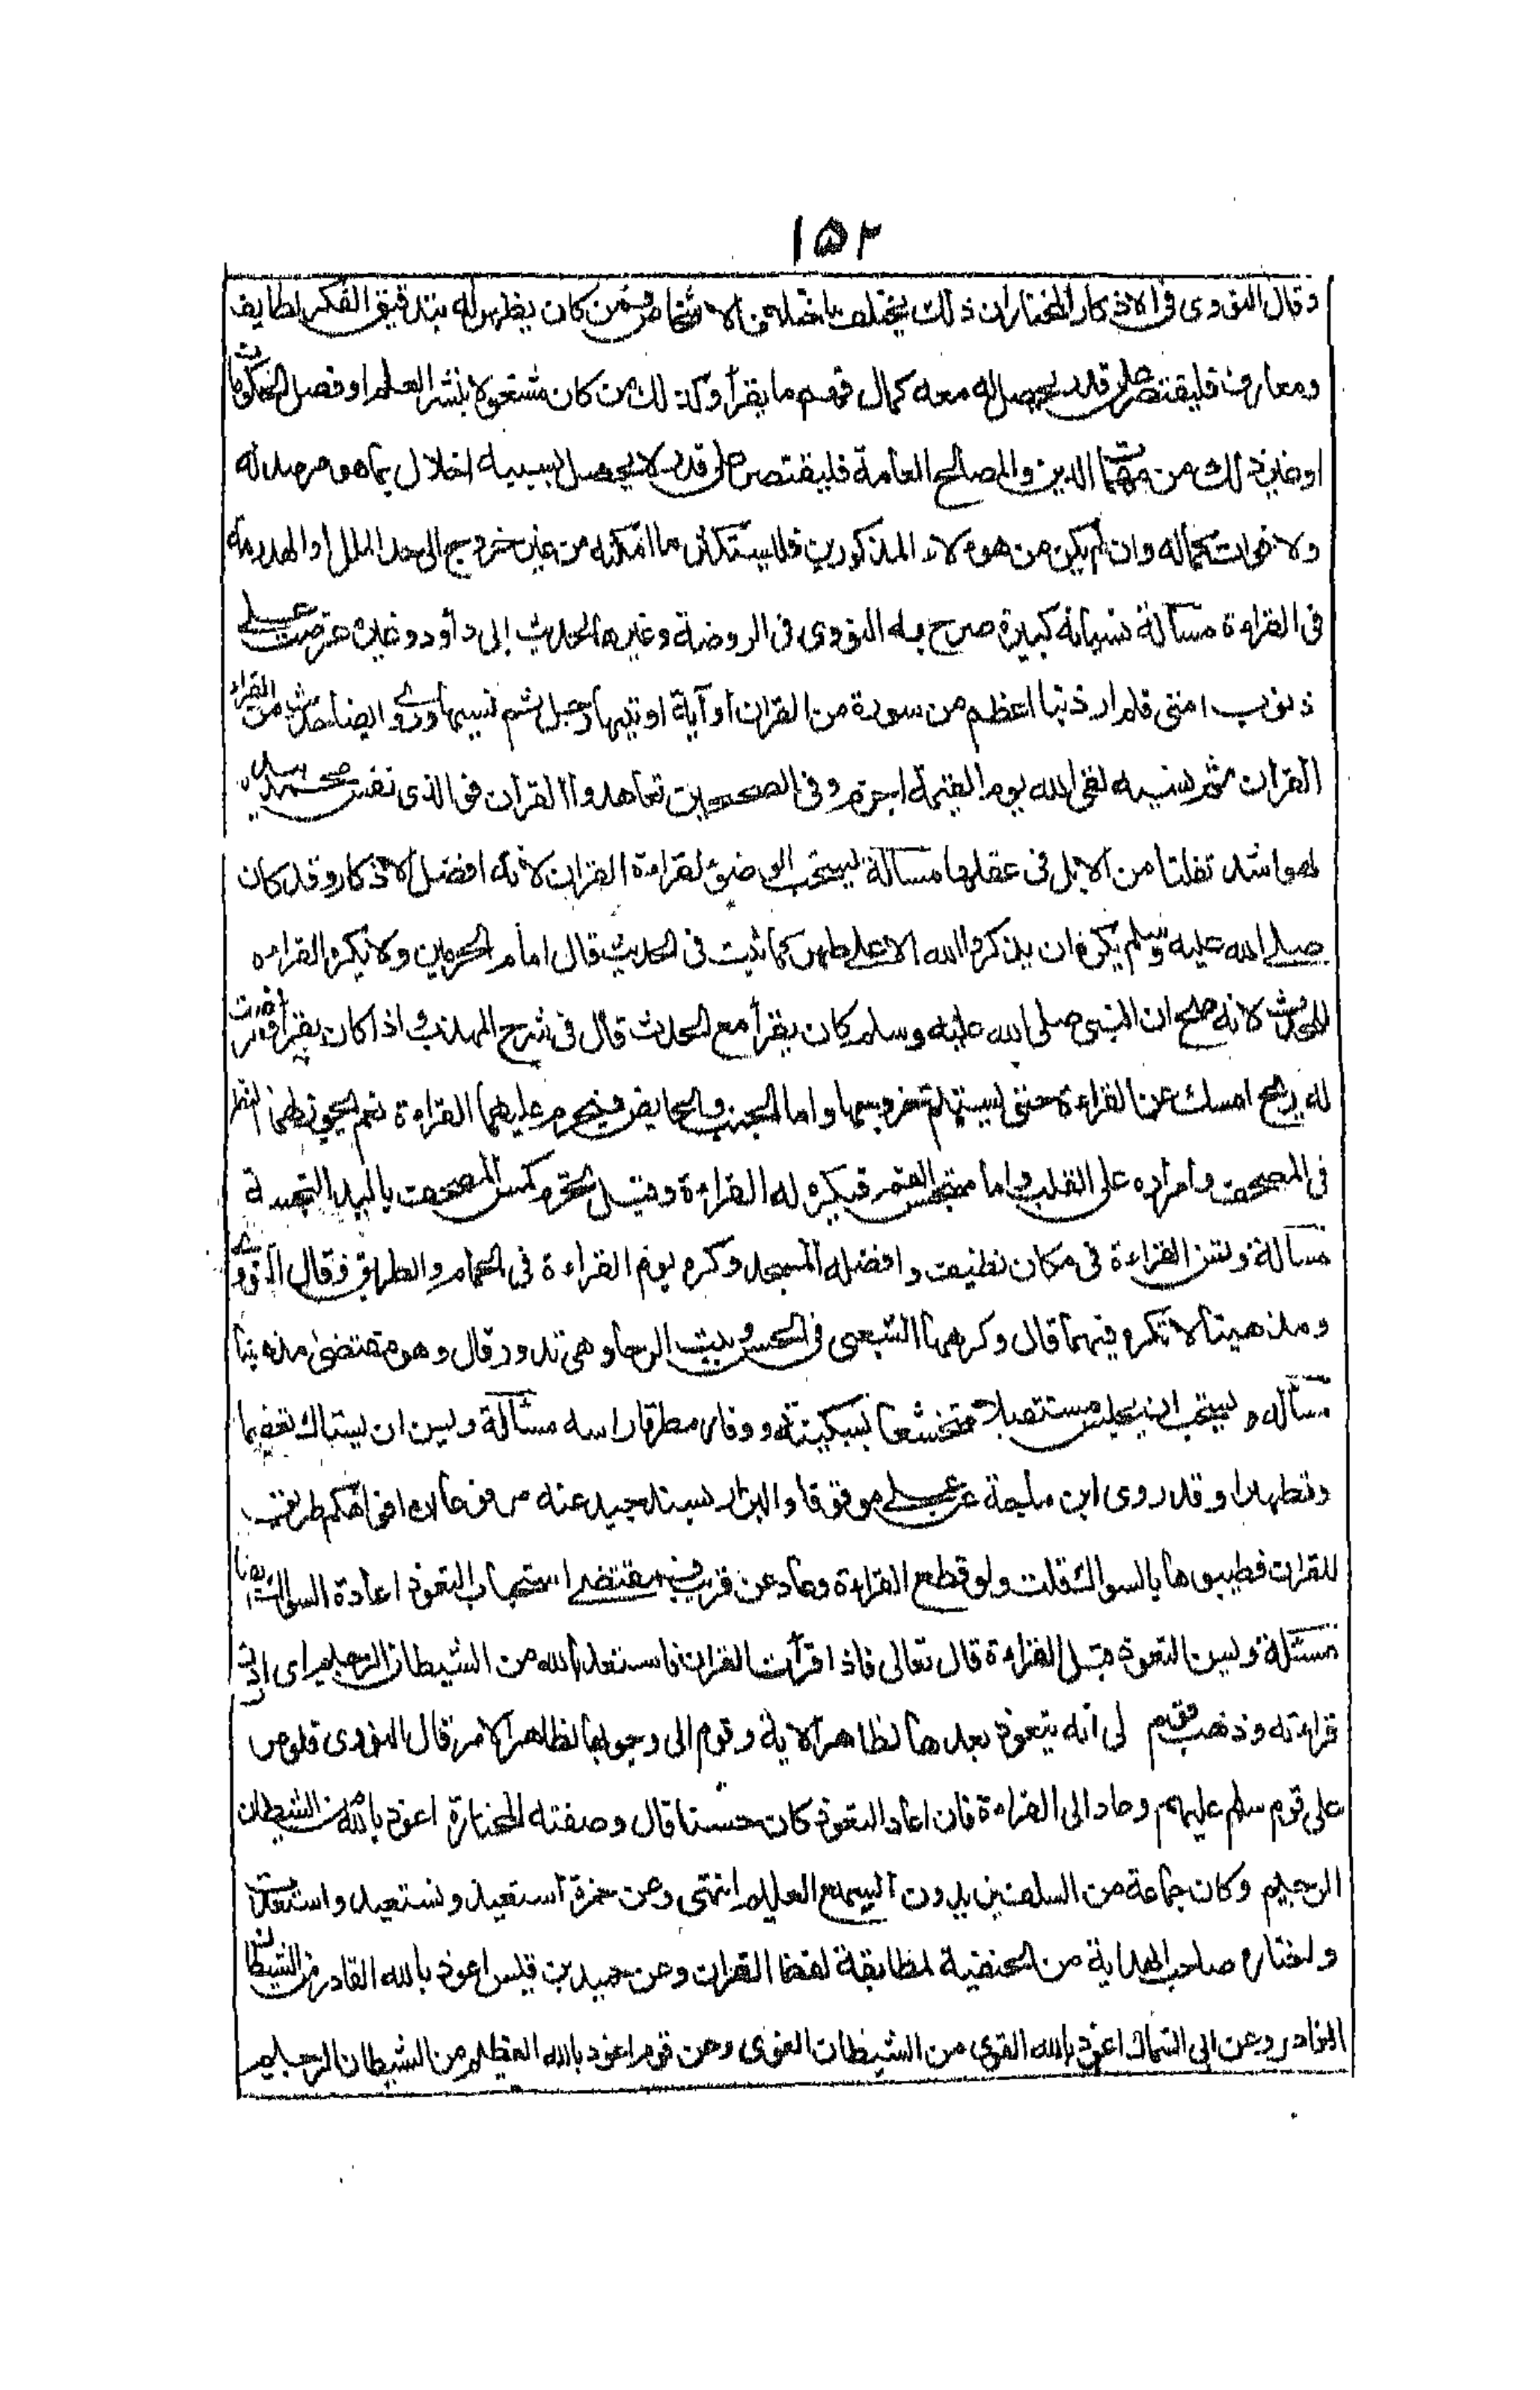 ١٥٢
وقال النووى فى الاذكار المختار ان ذلك يختلف باختلاف الاشخاص فمن كان يظهر له بتدقيق الفكر لطايف
ومعارف فليقتصر على قدر يحصل له معه كمال فهم ما يقرأ وكذلك من كان مشغولا بنشر العلم او فصل الحكومات
او غير ذلك من مهمات الدين والمصالح العامة فليقتصر على قدر لا يحصل بسببه اخلال بما هو مرصد له
ولا فوات كماله وان لم يكن من هولاء المذكورين فليستكثر ما امكنه من غير خروج الى حد الملل او الهذرمة
فى القراءة مسألة نسيانه كبيرة صرح به النووى فى الروضة وغيرها لحديث ابى داؤد وغيره عرضت على
ذنوب امتى فلم ار ذنبا اعظم من سورة من القران او آية اوتيها رجل ثم نسيها وروى ايضا حديث من القراء
القران ثم نسيه لقى الله يوم القيمة اجذم وفى الصحيحين تعاهدوا القران فو الذى نفس محمد بيده
لهو اشد تفلتا من الابل فى عقلها مسألة يستحب الوضوء لقراءة القران لانه افضل الاذكار وقد كان
صلى الله عليه وسلم يكره ان يذكر الله الا على طهر كما ثبت فى الحديث قال امام الحرمين ولا يكره القراءه
للمحدث لانه صح ان النبى صلى الله عليه وسلم كان يقرأ مع الحدث قال فى شرح المهذب واذا كان يقرأ فعرضت
له ريح امسك عن القراءة حتى يستتم خروجها واما الجنب والحايض فيحرم عليهما القراءة نعم يجوز لهما النظر
فى المصحف وامراره على القلب واما متنجس الفم فيكره له القراءة وقيل يحرم كمس المصحف باليد النجسة
مسألة وتسن القراءة فى مكان نظيف وافضله المسجد وكره قوم القراءة فى الحمام والطريق فقال النووى
ومذهبنا لا تكره فيهما قال وكرهها الشعبى فى الحش وبيت الرحا وهى تدور قال وهو مقتضى مذهبنا
مسأله ويستحب ان يجلس مستقبلا متخشعا بسكينة ووقار مطرقا راسه مسألة ويسن ان يستاك تعظيما
وتطهيرا وقد روى ابن ماجة عن على موقوفا والبزار بسند جيد عنه مرفوعا ان افواهكم طرق
للقران فطيبوها بالسواك قلت ولو قطع القراءة وعاد عن قرب فمقتضى استحباب التعوذ اعادة السواك ايضا
مسئلة ويسن التعوذ قبل القراءة قال تعالى فاذا قرأت القران فاستعذ بالله من الشيطان الرجيم اى اردت
قراءته وذهب قوم لى انه يتعوذ بعدها لظاهر الاية وقوم الى وجوبها لظاهر الامر قال النووى فلو مر
على قوم سلم عليهم وعاد الى القراءة فان اعاد التعوذ كان حسنا قال وصفته المختارة اعوذ بالله من الشيطان
الرجيم وكان جماعة من السلف يزيدون السميع العليم انتهى وعن حمزة استعيذ ونستعيذ واستعذت
واختاره صاحب الهداية من الحنفية لمطابقة لفظ القران وعن حميد بن قيس اعوذ بالله القادر من الشيطان
الغادر وعن ابى السماك اعوذ بالله القوى من الشيطان الغوى وعن قوم اعوذ بالله العظيم من الشيطان الرجيم